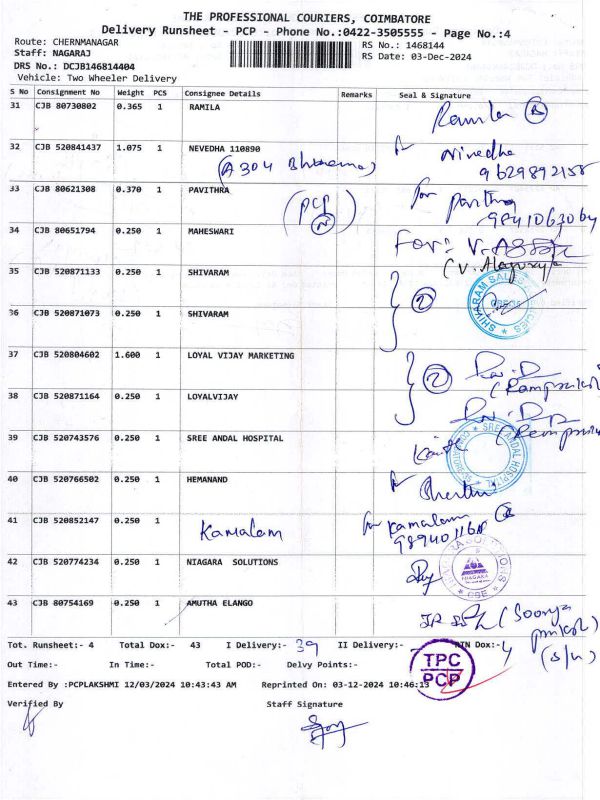 THE PROFESSIONAL COURIERS, COIMBATORE
Delivery Runsheet - PCP - Phone No.:0422-3505555 - Page No.:4
Route: CHERNMANAGAR
RS No.: 1468144
Staff: NAGARAJ
RS Date: 03-Dec-2024
DRS No.: DCJB146814404
Vehicle: Two Wheeler Delivery
S No Consignment No Weight PCS Consignee Details Remarks Seal & Signature
31 CJB 80730802 0.365 1 RAMILA Ramila
32 CJB 520841437 1.075 1 NEVEDHA 110890 Nivedha
A 304
9629892158
33 CJB 80621308 0.370 1 PAVITHRA for Pavithra
(PCP)
9841063064
34 CJB 80651794 0.250 1 MAHESWARI For:- V.
(V.
35 CJB 520871133 0.250 1 SHIVARAM
2
SHIVARAM SALES
36 CJB 520871073 0.250 1 SHIVARAM
37 CJB 520804602 1.600 1 LOYAL VIJAY MARKETING
2
38 CJB 520871164 0.250 1 LOYALVIJAY
39 CJB 520743576 0.250 1 SREE ANDAL HOSPITAL
SREE ANDAL HOSPITAL
40 CJB 520766502 0.250 1 HEMANAND
41 CJB 520852147 0.250 1 Kamalam for Kamalam
42 CJB 520774234 0.250 1 NIAGARA SOLUTIONS
NIAGARA
CBE
43 CJB 80754169 0.250 1 AMUTHA ELANGO (Soorya
(S/n)
Tot. Runsheet:- 4 Total Dox:- 43 I Delivery:- 39 II Delivery:- RTN Dox:- 4
Out Time:- In Time:- Total POD:- Delvy Points:-
TPC
PCP
Entered By :PCPLAKSHMI 12/03/2024 10:43:43 AM Reprinted On: 03-12-2024 10:46:13
Verified By Staff Signature